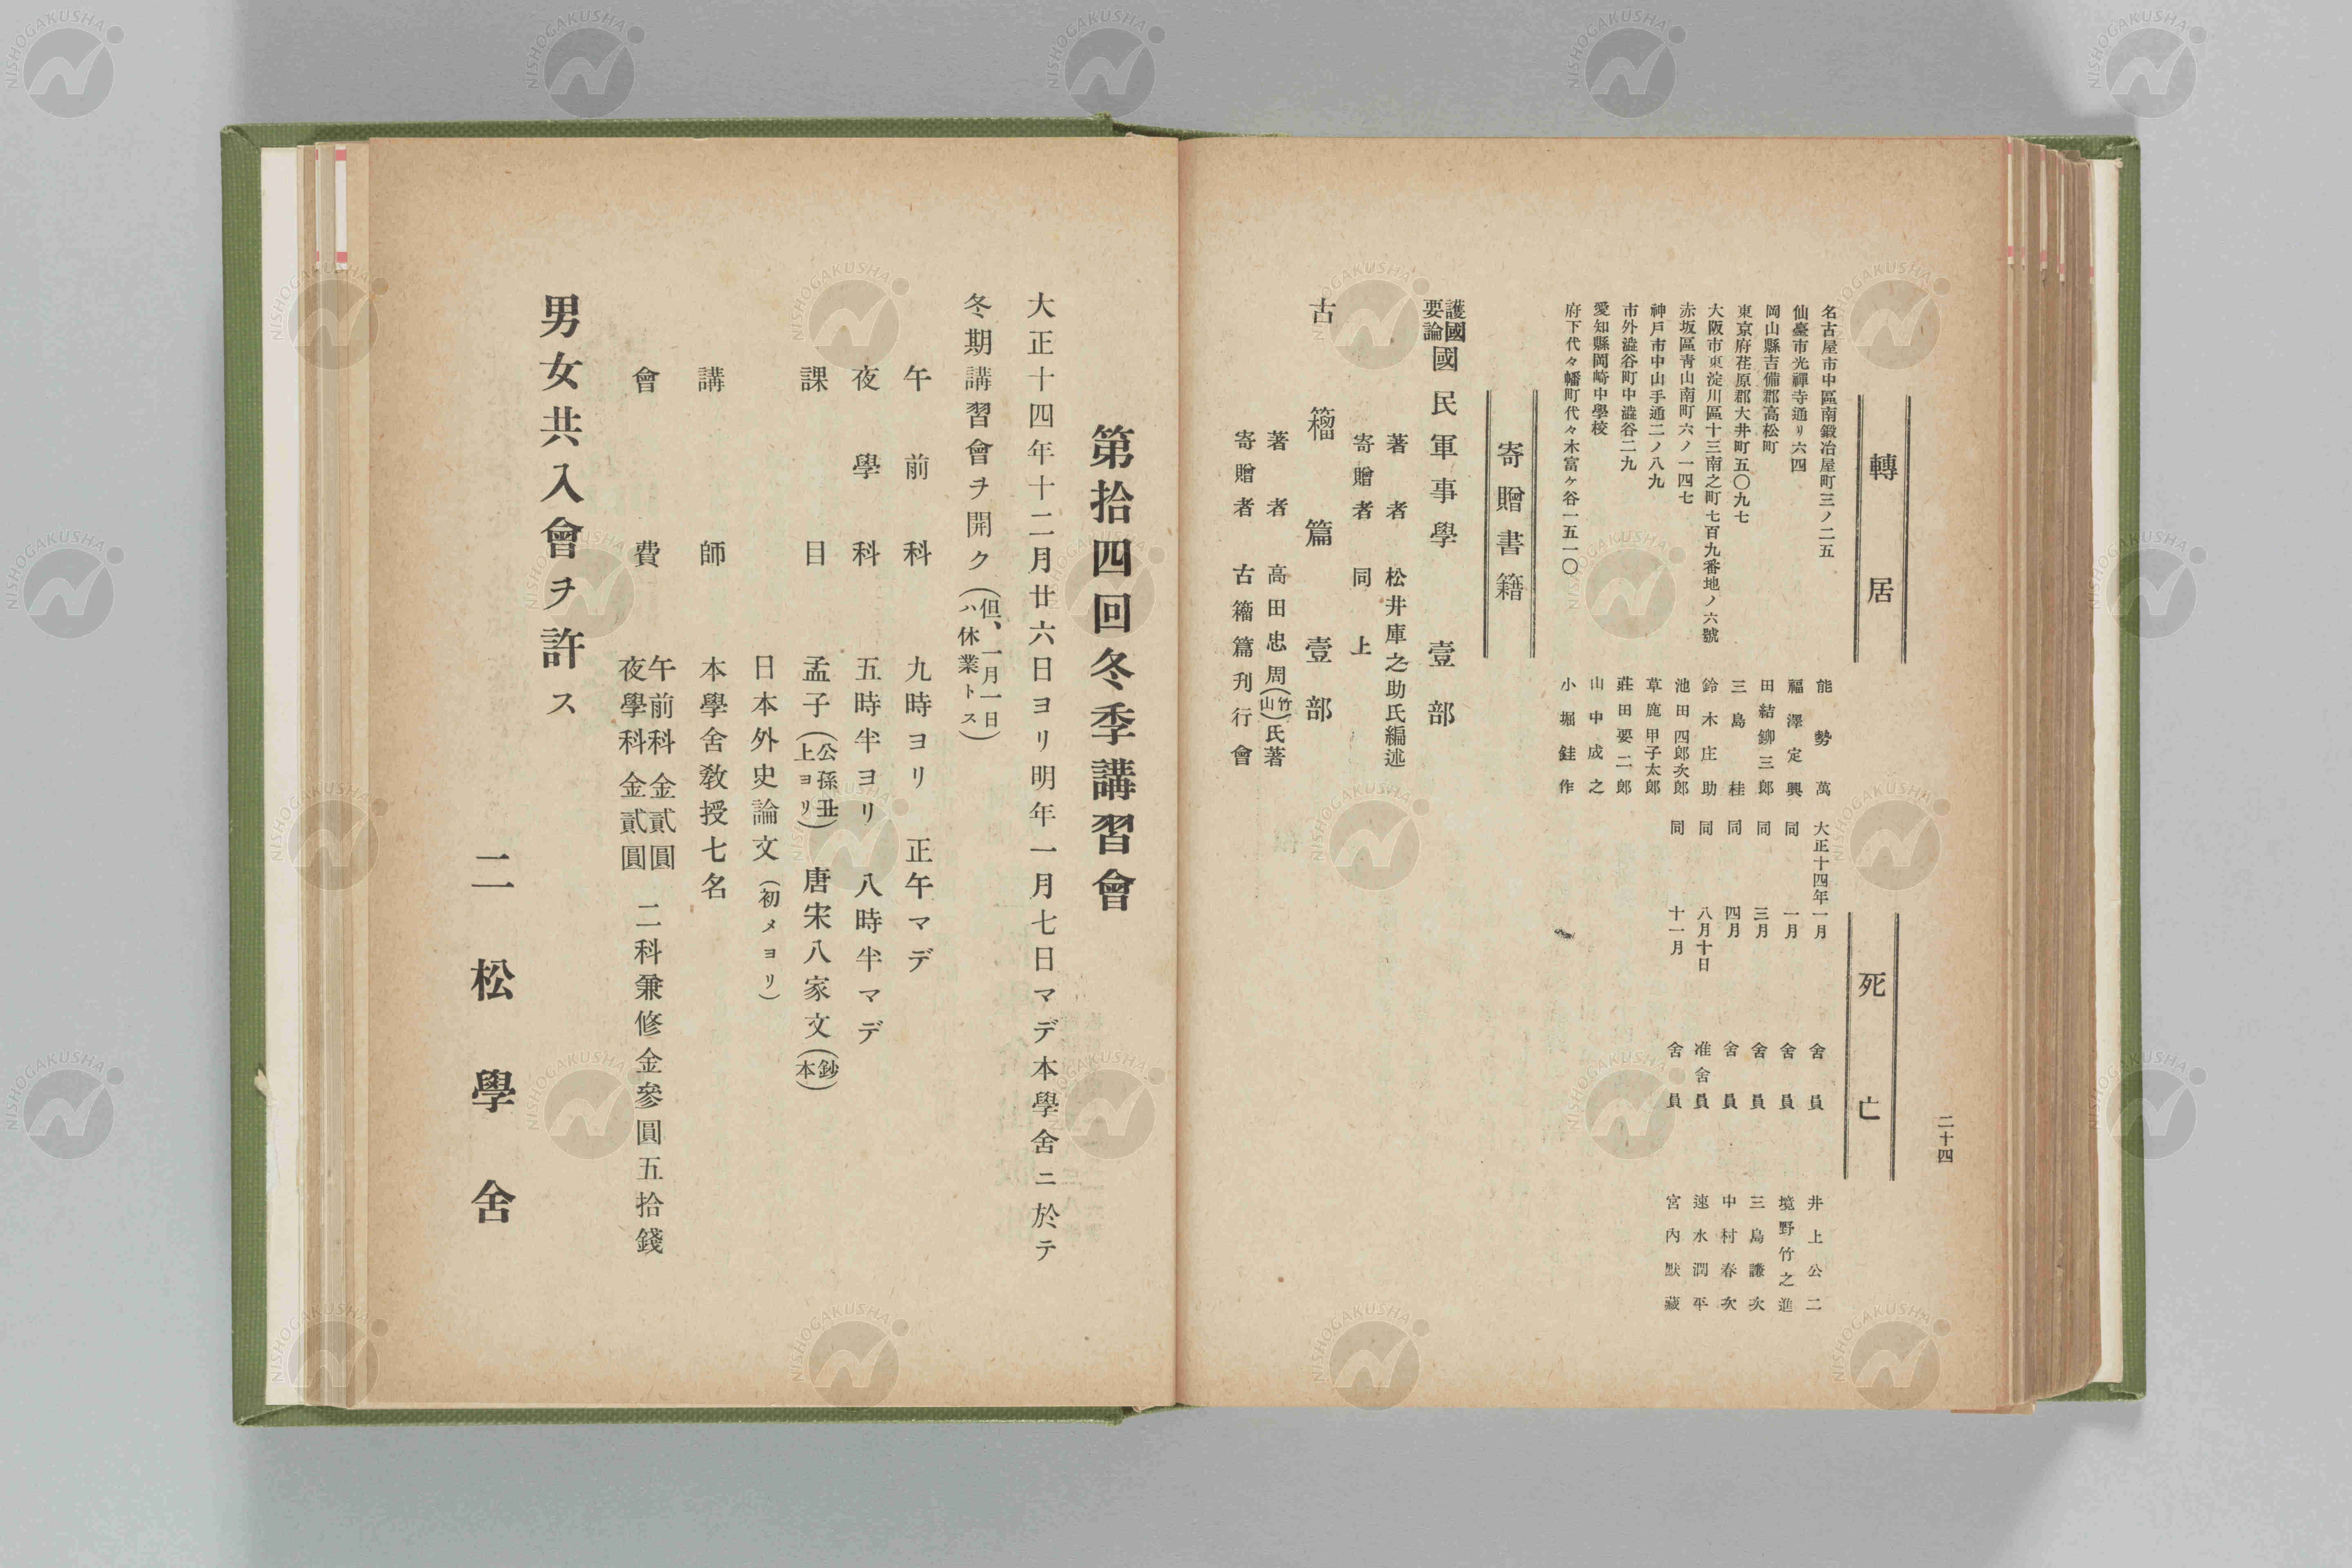 二十四
轉居
名古屋市中區南鍛冶屋町三ノ二五 能勢萬
仙臺市光禪寺通リ六四 福澤定興
岡山縣吉備郡高松町 田結鉚三郎
東京府荏原郡大井町五〇九七 三島桂
大阪市東淀川區十三南之町七百九番地ノ六號 鈴木庄助
赤坂區靑山南町六ノ一四七 池田四郎次郎
神戶市中山手通二ノ八九 草鹿甲子太郎
市外澁谷町中澁谷二九 莊田要二郎
愛知縣岡崎中學校 山中成之
府下代々幡町代々木富ヶ谷一五一〇 小堀銈作
死亡
大正十四年一月 舍員 井上公二
同 一月 舍員 境野竹之進
同 三月 舍員 三島謙次
同 四月 舍員 中村春次
同 八月十日 准舍員 速水潤平
同 十一月 舍員 宮內默藏
寄贈書籍
護國要論 國民軍事學 壹部
著者 松井庫之助氏編述
寄贈者 同上
古籀篇 壹部
著者 高田忠周(竹山)氏著
寄贈者 古籀篇刊行會
第拾四回冬季講習會
大正十四年十二月廿六日ヨリ明年一月七日マデ本學舍ニ於テ
冬期講習會ヲ開ク(但、一月一日ハ休業トス)
午前科 九時ヨリ 正午マデ
夜學科 五時半ヨリ 八時半マデ
課目 孟子(公孫丑上ヨリ) 唐宋八家文(鈔本)
日本外史論文(初メヨリ)
講師 本學舍敎授七名
會費 午前科 金貳圓 夜學科 金貳圓 二科兼修金參圓五拾錢
男女共入會ヲ許ス
二松學舍
NISHOGAKUSHA